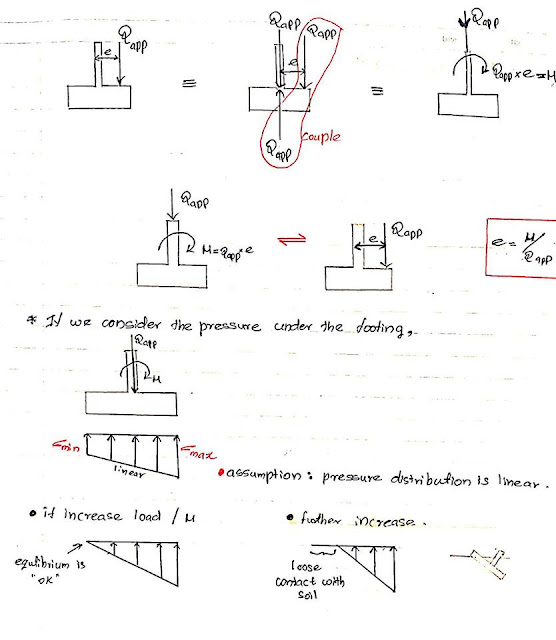 Qapp
e
≡
Qapp Qapp
e
couple
Qapp
≡
Qapp
Qapp × e = M
Qapp
M = Qapp * e
⇌
e
Qapp
e = M / Qapp
* If we consider the pressure under the footing,
Qapp
M
σmin
σmax
linear
• assumption : pressure distribution is linear.
• if increase load / M
• futher increase.
equlibrium is
"OK"
loose
contact with
soil